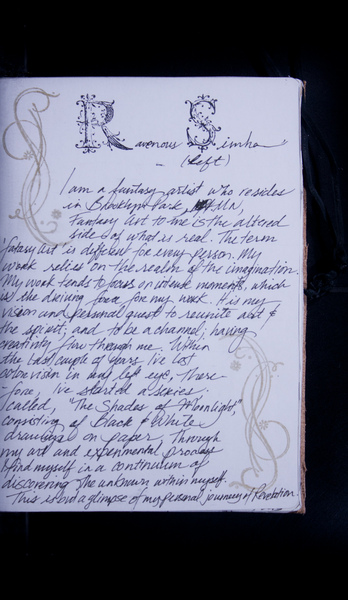 Ravenous Simha
(left)
I am a fantasy artist who resides
in Brooklyn Park, MN,
Fantasy art to me is the altered
side of what is real. The term
'fatasy art' is different for every person. My
work relies on the realm of the imagination.
My work tends to focus on intense moments, which
is the driving force for my work. It is my
vision and personal quest to reunite art &
the spirit, and to be a channel, having
creativity flow through me. When
the last couple of years I've lost
vision in my left eye, there
-fore, I've started a series
called, "The Shades of Moonlight,"
consisting of Black & White
drawings on paper, through
my art and experimental process
I find myself in a continuum of
discovering the unknown within myself.
This is but a glimpse of my personal journey of Revelation.